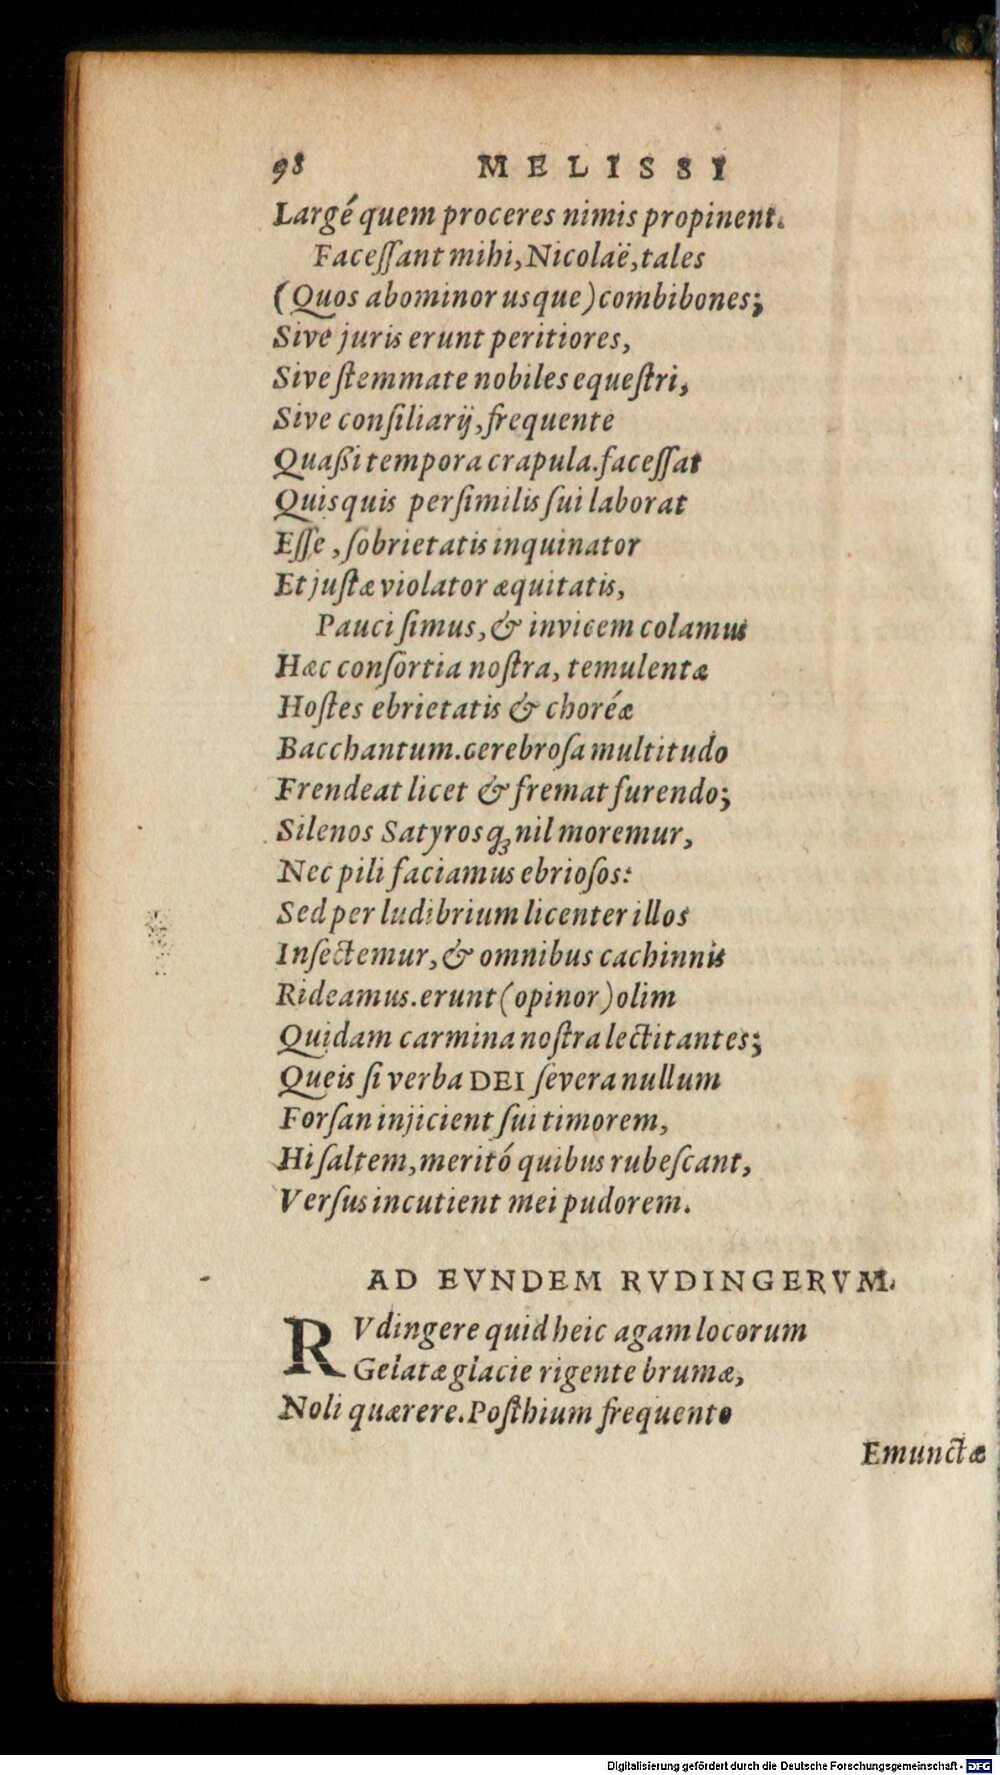 98 MELISSI
Largé quem proceres nimis propinent.
Faceſſant mihi, Nicolaë, tales
(Quos abominor usque) combibones;
Sive juris erunt peritiores,
Sive ſtemmate nobiles equeſtri,
Sive conſiliarij, frequente
Quaßi tempora crapula. faceſſat
Quisquis perſimilis ſui laborat
Eſſe, ſobrietatis inquinator
Et juſtæ violator æquitatis,
Pauci ſimus, & invicem colamus
Hæc conſortia noſtra, temulentæ
Hoſtes ebrietatis & choréæ
Bacchantum. cerebroſa multitudo
Frendeat licet & fremat furendo;
Silenos Satyrosq́ꝫ nil moremur,
Nec pili faciamus ebrioſos:
Sed per ludibrium licenter illos
Inſectemur, & omnibus cachinnis
Rideamus. erunt (opinor) olim
Quidam carmina noſtra lectitantes;
Queis ſi verba DEI ſevera nullum
Forſan injicient ſui timorem,
Hi ſaltem, meritó quibus rubeſcant,
Verſus incutient mei pudorem.
AD EVNDEM RVDINGERVM.
RVdingere quid heic agam locorum
Gelatæ glacie rigente brumæ,
Noli quærere. Poſthium frequento
Emunctæ
Digitalisierung gefördert durch die Deutsche Forschungsgemeinschaft - DFG